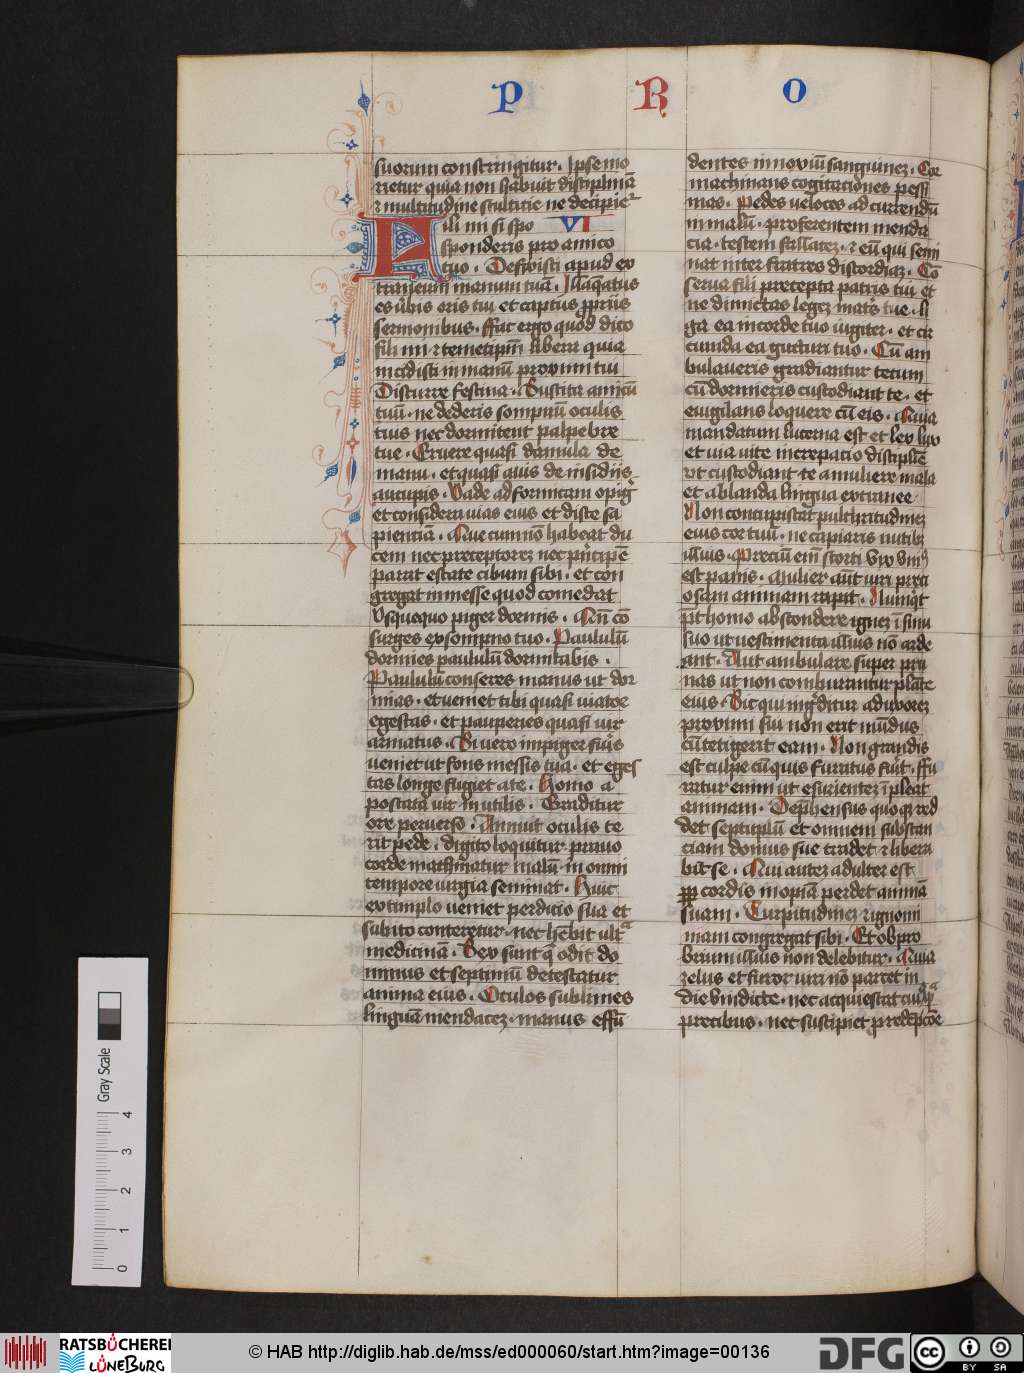 P R O
suorum constringitur . Ipse mo
rietur quia non habuit disciplinā
⁊ multitudine stulticie ne decipiet͛
Fili mi si spo VI
sponderis pro amico
tuo . Defixisti apud ex
traneum manum tuā . Illaqatus
es ūbis oris tui et captus ꝓpriis
sermonibus . ffac ergo quod dico
fili mi ⁊ temetipm̄ libera quia
incidisti in manū proximi tui
Discurre festina . Suscita amicū
tuū . ne dederis sompnū oculis
tuis nec dormitent palpebre
tue . Eruere quasi damula de
manu . et quasi auis de insidiis
aucupis . Vade ad formicam o piḡ
et considera uias eius et disce sa
pienciā . Que cum nō habeat du
cem nec preceptorez nec pncipē
parat estate cibum sibi . et con
gregat in messe quod comedat
Vsquequo piger dormis . Qn̄ cō
surges ex sompno tuo . Paululū
dormies paululū dormitabis .
Paululū conseres manus ut dor
mias . et ueniet tibi quasi uiator
egestas . et pauperies quasi uir
armatus . Si uero impiger fūis
ueniet ut fons messis tua . et eges
tas longe fugiet a te . Homo a
postata uir in utilis . Graditur
ore peruerso . Annuit oculis te
rit pede . digito loquitur prauo
corde machinatur malū in omni
tempore iurgia seminat . Huic
extimplo ueniet perdicio sua et
subito conteretur . nec hēbit ultᵃ
medicinā . Sex sunt q̄ odit do
minus et septimū detestatur
anima eius . Oculos sublimes
linguā mendacez . manus effū
dentes innoxiū sanguinez . Cor
machinans cogitaciones pessi
mas . Pedes ueloces ad currendū
in malū . proferentem menda
cia . testem fallacez . ⁊ eū qui semi
nat inter fratres discordiaz . Cō
serua fili precepta patris tui et
ne dimictas legez mat͛s tue . li
ga ea in corde tuo iugiter . et cir
cumda ea gutturi tuo . Cū am
bulaueris gradiantur tecum
cū dormieris custodiant te . et
euigilans loquere cū eis . Quia
mandatum lucerna est et lex lux
et uia uite increpacio discipline
vt custodiant te a muliere mala
et a blanda lingua extranee
Non concupiscat pulchritudinez
eius cor tuū . ne capiaris nutibz
illius . Preciū eīm scorti vix vniꝰ
est panis . mulier aūt uiri preci
osam animam rapit . Nunqͥt
pt̄ homo abscondere ignez ī sinu
suo ut uestimenta illius nō arde
ant . Aut ambulare super pru
nas ut non comburantur plāte
eius . Sic qui inḡditur ad uxorez
proximi sui non erit mūdus
cū tetigerit eam . Non grandis
est culpe cū quis furatus fūit . ffu
ratur enim ut esurientez ī pleat
animam . Dep̄hensus quoqꝫ red
det septuplū et omnem substan
ciam domus sue tradet ⁊ libera
bit se . Qui autez adulter est
ꝓpꝑ cordis inopiā perdet animā
suam . Turpitudinez ⁊ ignomi
niam congregat sibi . Et obpro
brium illius non delebitur . Quia
zelus et furor uiri nō parcet in
die vindicte . nec acquiescat cuiꝰqᵃ
precibus . nec suscipiet ꝓ redēpcōe
Gray Scale
4
3
2
1
0
RATSBÜCHEREI
LÜNEBURG
© HAB http://diglib.hab.de/mss/ed000060/start.htm?image=00136
DFG
cc BY SA